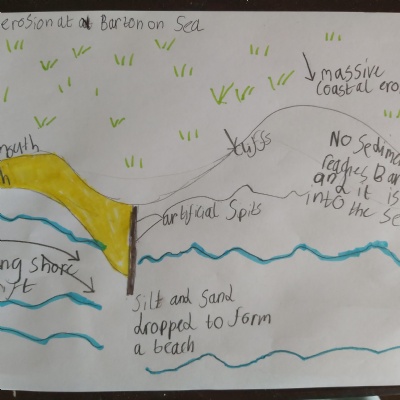 erosion at a Barton on Sea
massive
coastal ero
mouth
h
cliffs
No Sedime
reaches Bar
and it is
into the Se
artificial Spits
ng shore
ft
Silt and Sand
dropped to form
a beach